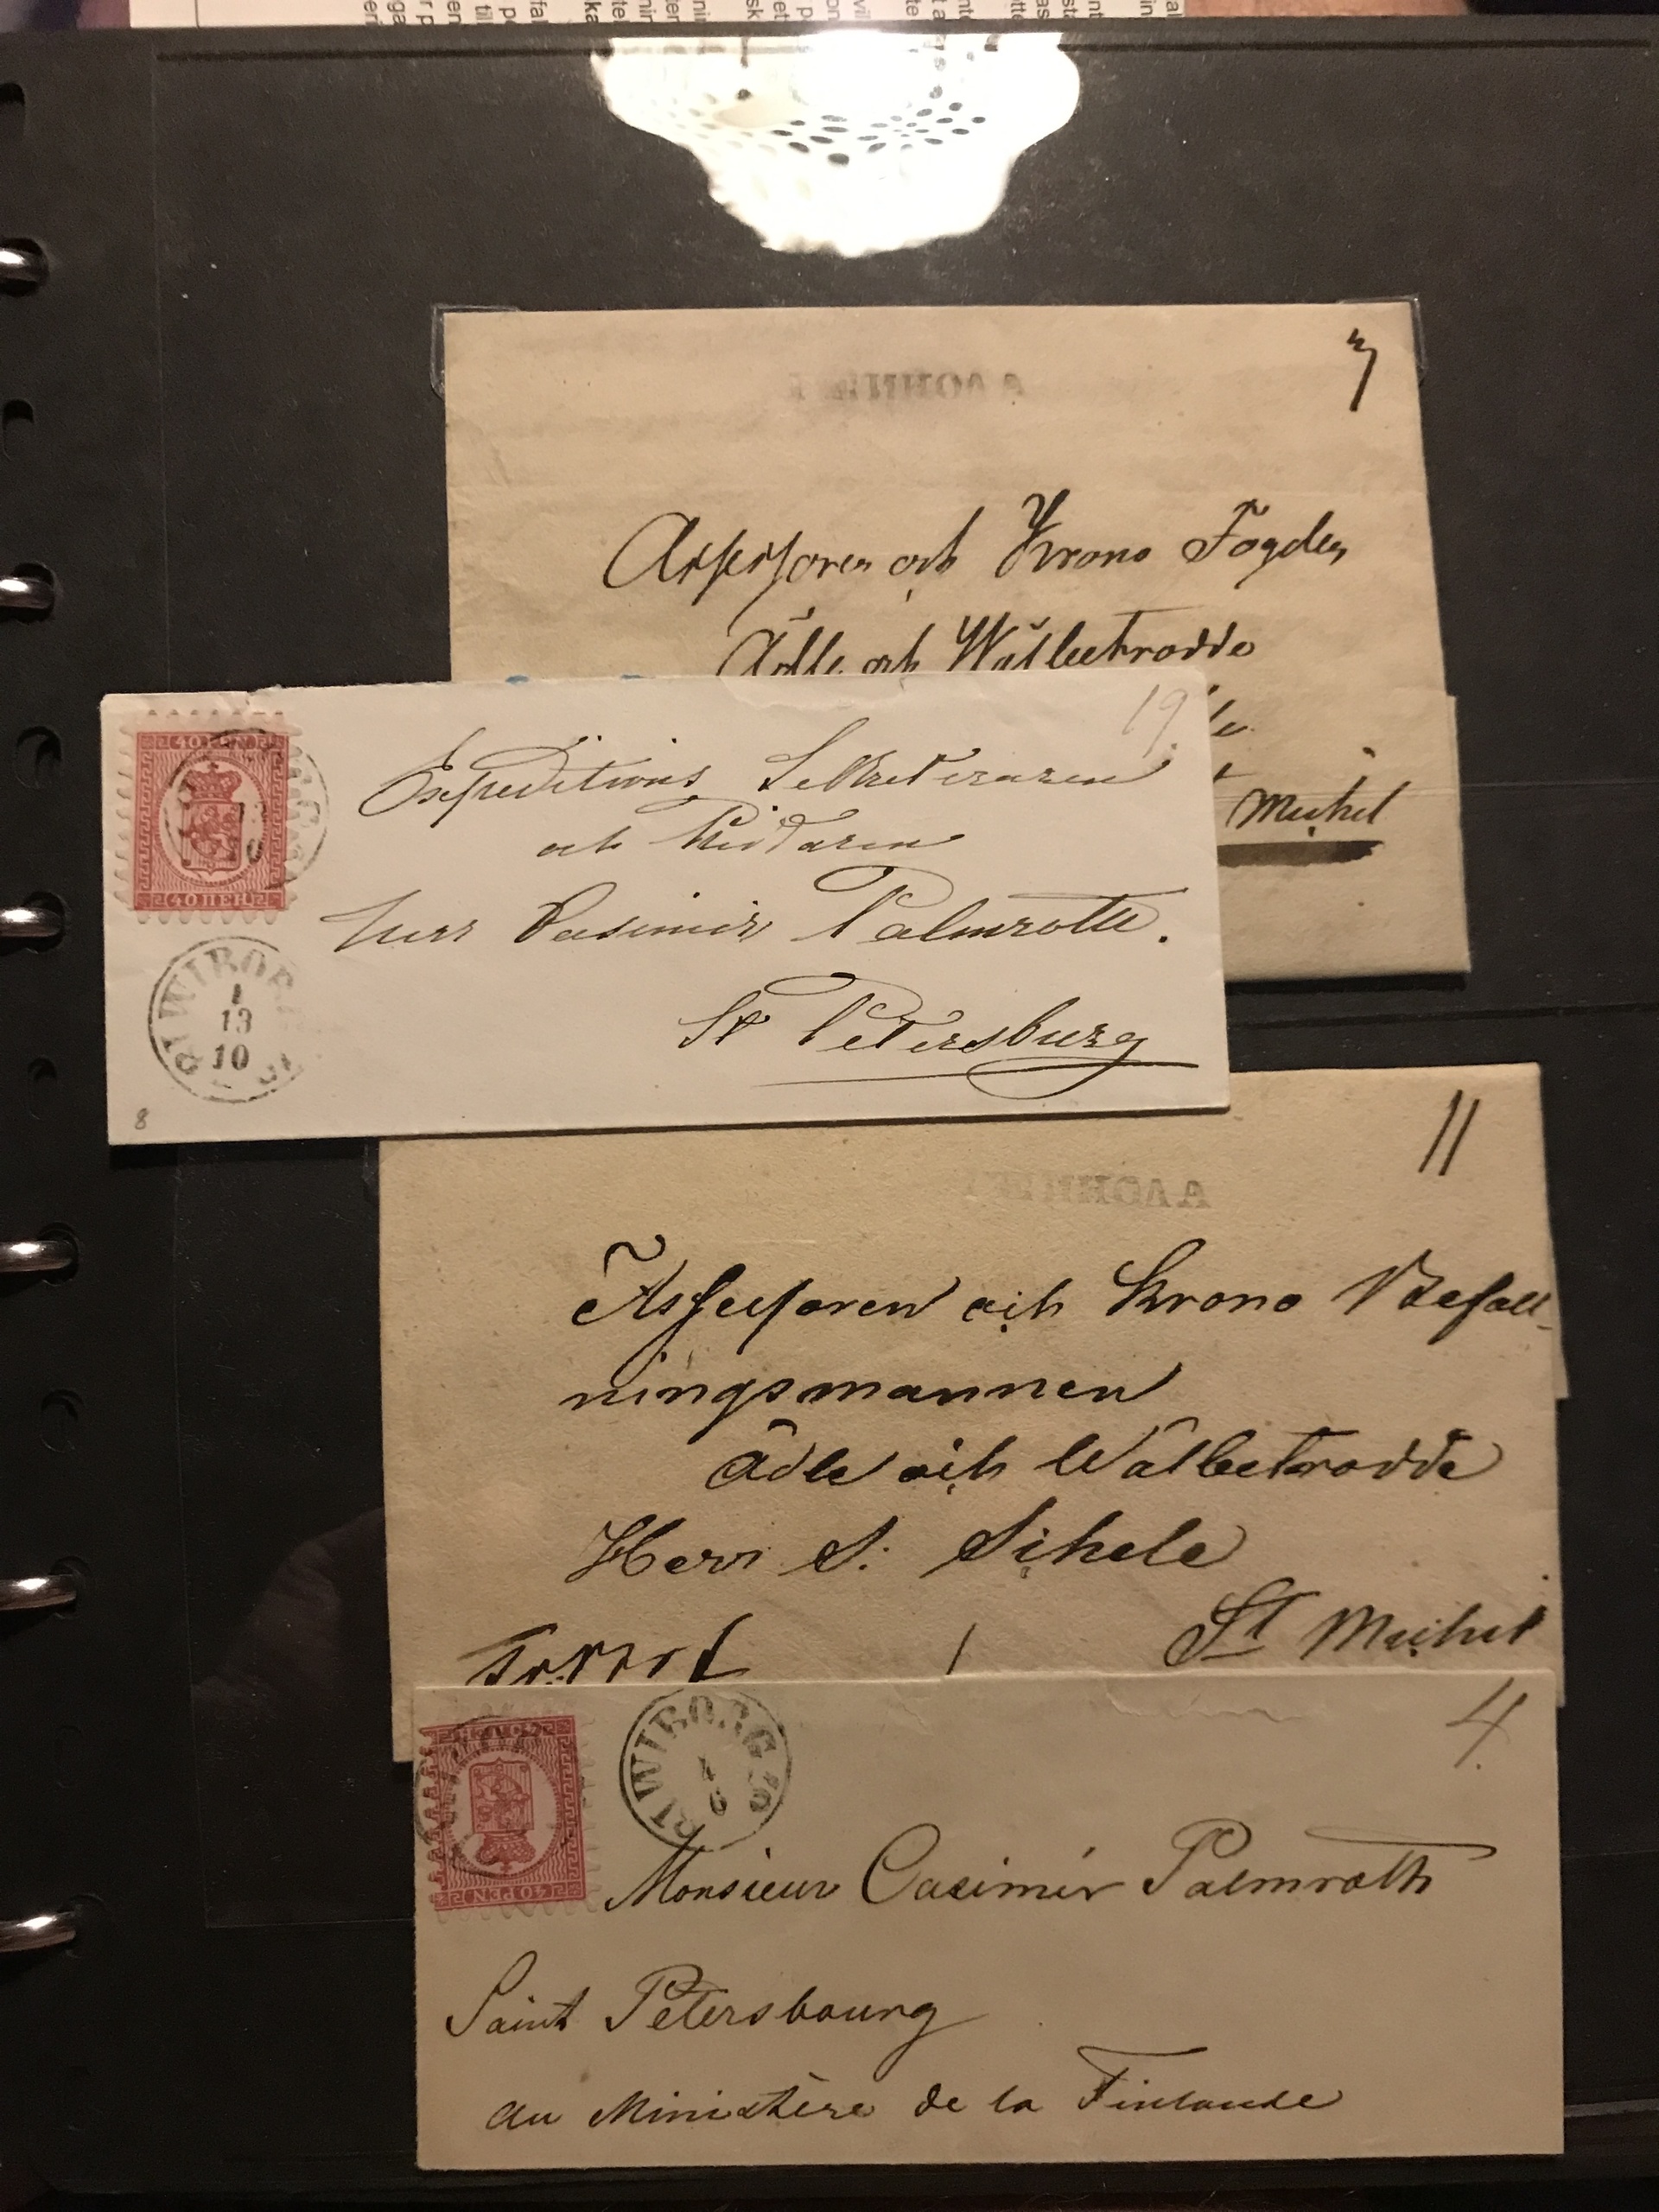 Assessoren och Krono Fogden
Ädle och Wälbetrodde
Michel
19.
40 ПЕН
Expeditions Sekreteraren
och Riddaren
Herr Casimir Palmroth.
St Petersburg
WIBORG
13
10
8
11
Assessoren och Krono Befall-
ningsmannen
Ädle och Wälbetrodde
Herr S. Sihele
St Michel
4.
WIBORG
40 PEN
Monsieur Casimir Palmroth
Saint Petersbourg
au Ministère de la Finlande